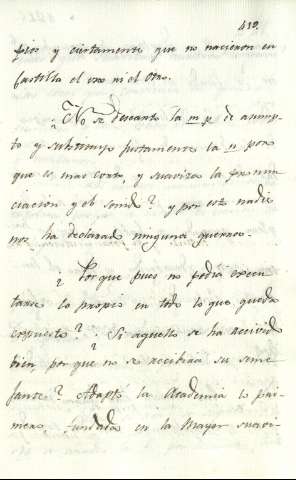 412.
fios y ciertamente que no nacieron en
Castilla el uno ni el otro.
¿No se descarto la mp de asump-
to y substituyó justamente la n por
que es mas corta, y suaviza la pronun-
ciación y el sonido? y por esto nadie
nos ha declarado ninguna guerra.
¿Porque pues no podrá execu-
tarse lo propio en todo lo que queda
expuesto? Si aquello se ha recivido
bien ¿por que no se recibirá su seme-
jante? Adoptó la Academia lo pri-
mero, fundada en la mayor suavi-